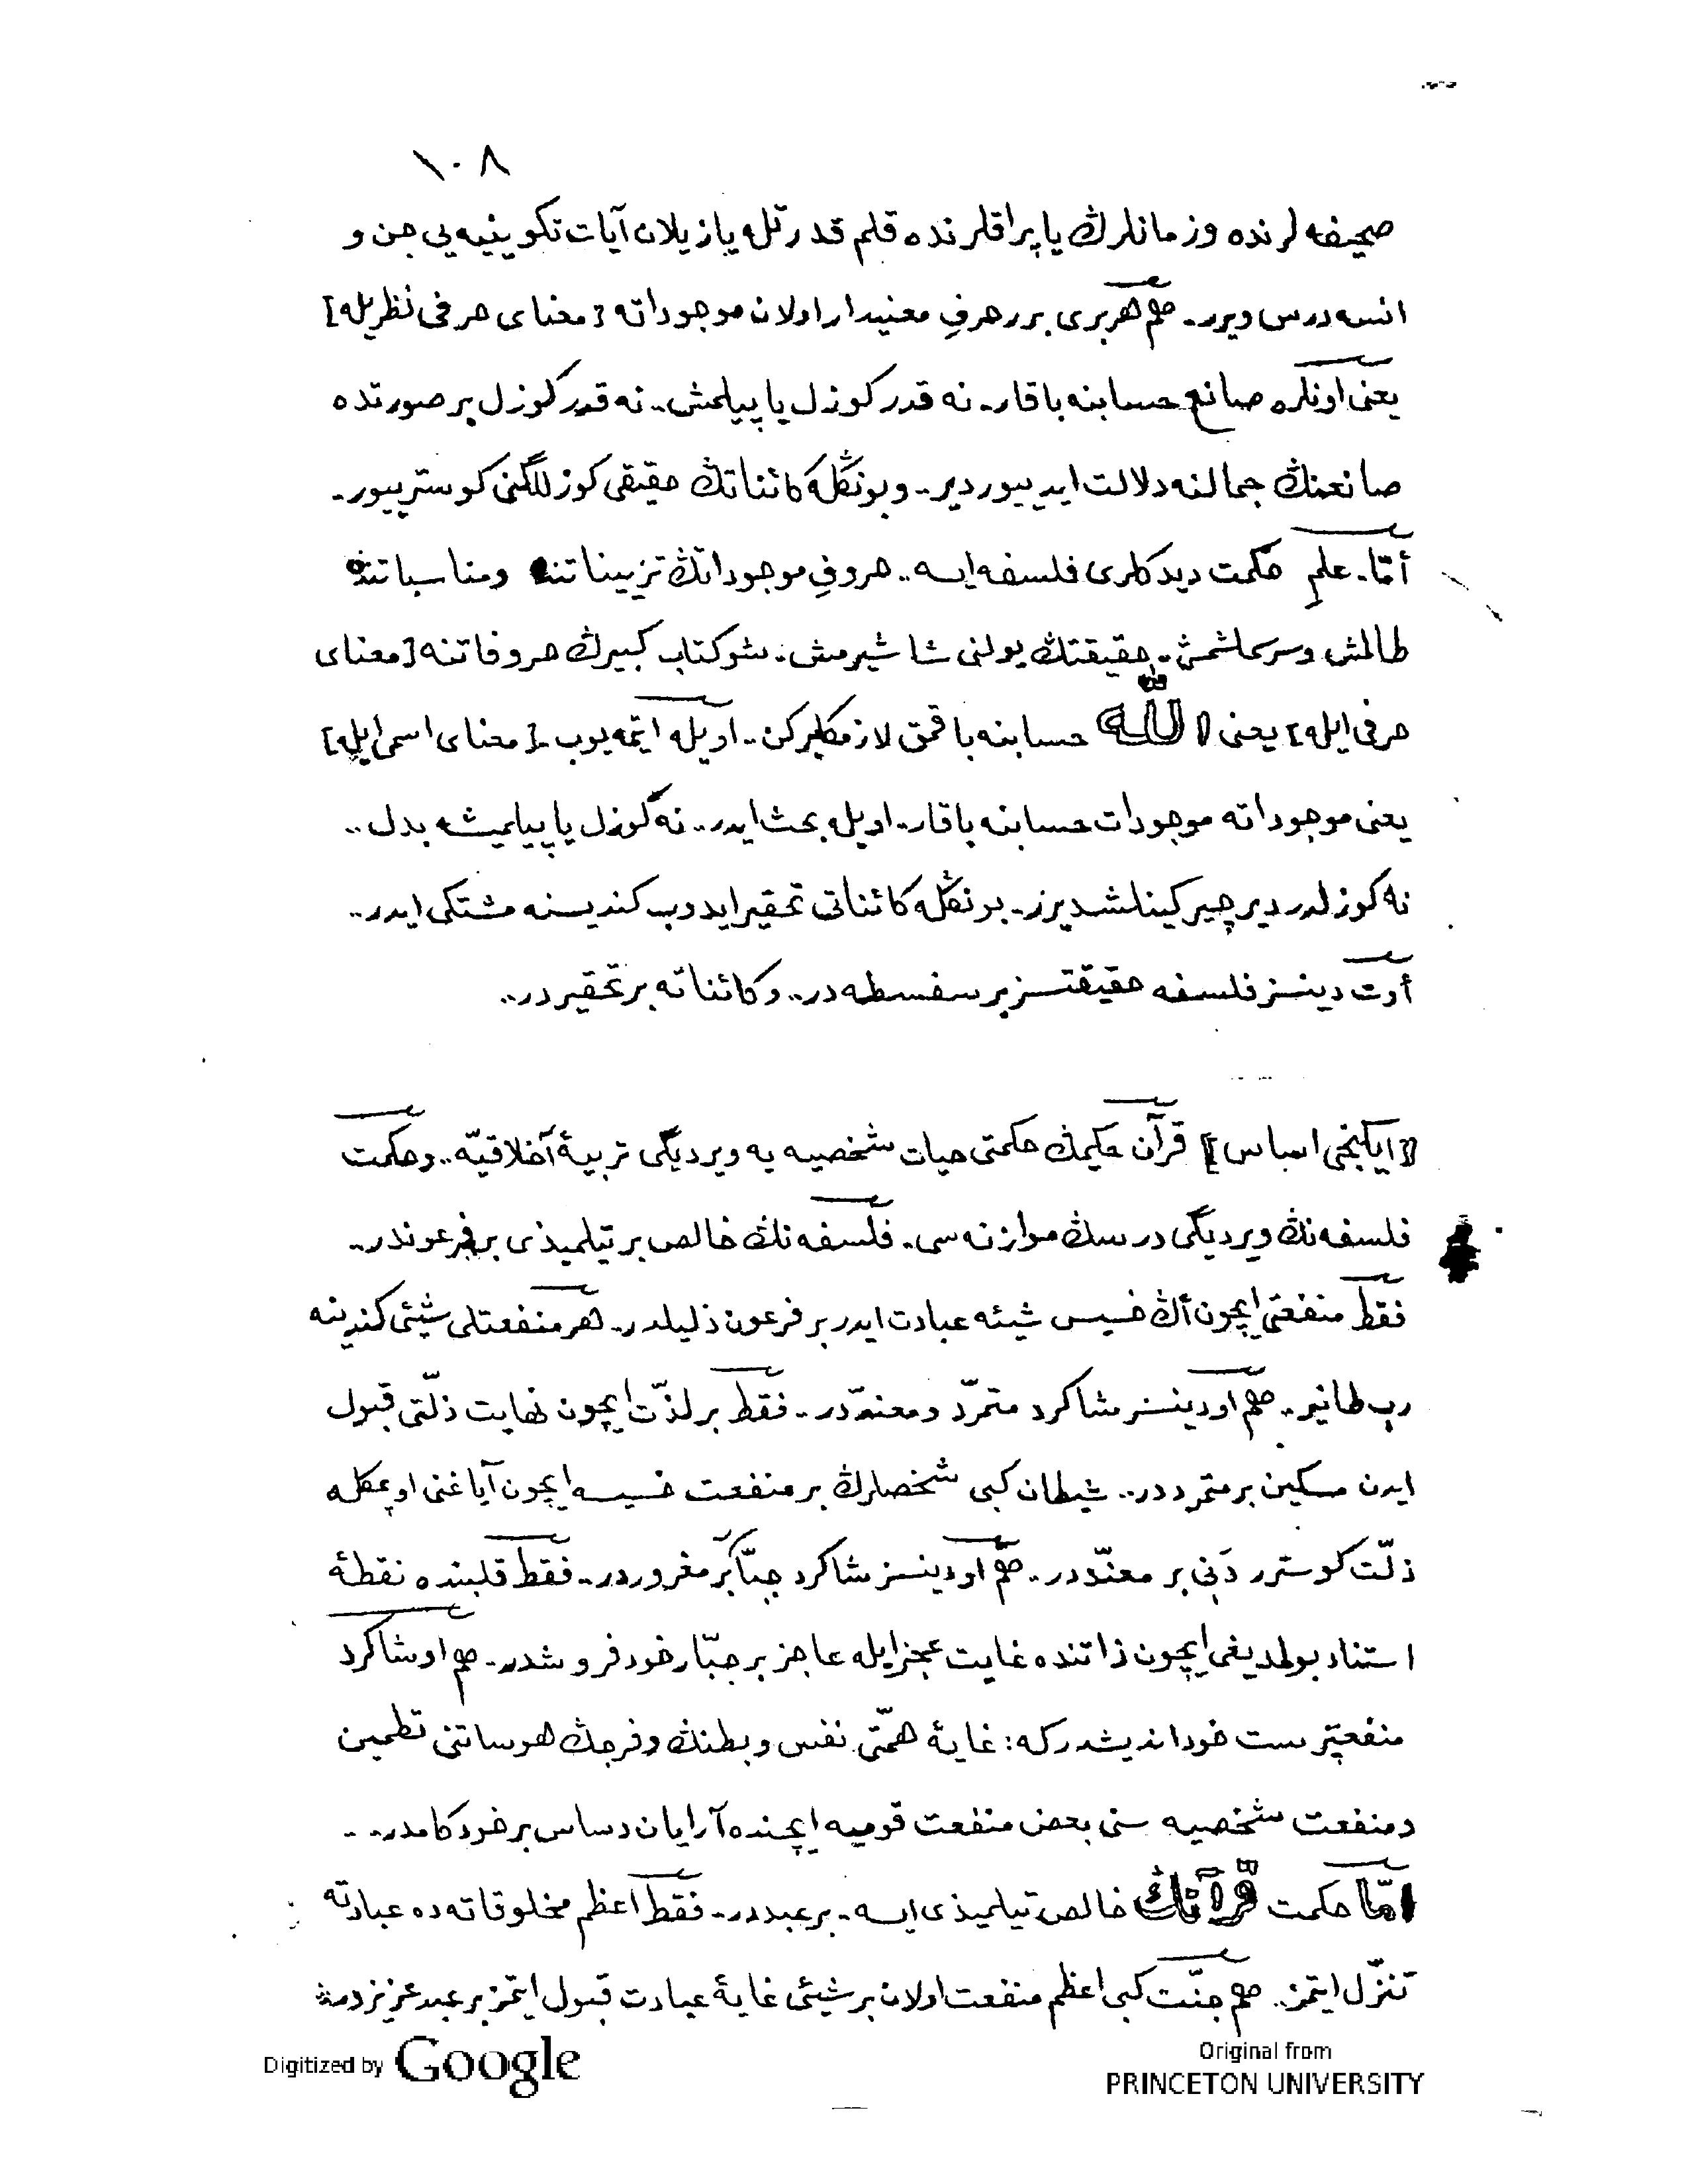 ١٠٨
صحیفه لرنده وزمانلرڭ یاپراقلرنده قلم قدرتله یازیلان آیات تكوینیه یی جن و
انسه درس ویرر.. هم هربری برر حرفِ معنیدار اولان موجوداته [معنای حرفی نظریله]
یعنی اونلره صانع حسابنه باقار.. نه قدر كوزل یاپیلمش.. نه قدر كوزل بر صورتده
صانعنڭ جمالنه دلالت ایدییور دیر.. وبونڭله كائناتڭ حقیقی كوزللگنی كوسترییور..
أمّا.. علمِ حكمت دیدكلری فلسفه ایسه.. حروفِ موجوداتڭ تزییناتنده ومناسباتنده
طالمش وسرسملشمش.. حقیقتڭ یولنی شاشیرمش.. شو كتاب كبیرڭ حروفاتنه [معنای
حرفی ایله] یعنی الله حسابنه باقمق لازمكلیركن.. اویله ایتمه یوب.. [معنای اسمی ایله]
یعنی موجوداته موجودات حسابنه باقار.. اویله بحث ایدر.. نه كوزل یاپیلمیشه بدل..
نه كوزلدر دیر چیركینلشدیرر.. بونڭله كائناتی تحقیر ایدوب كندیسنه مشتكی ایدر..
أوت دینسز فلسفه حقیقتسز بر سفسطه در.. وكائناته بر تحقیردر..
[ایكنجی اساس] قرآن حكیمڭ حكمتی حیات شخصیه یه ویردیگی تربیۀ أخلاقیّه.. وحكمت
فلسفه نڭ ویردیگی درسڭ موازنه سی.. فلسفه نڭ خالص بر تیلمیذی بر فرعوندر..
فقط منفعتی ایچون أڭ خسیس شیئه عبادت ایدر بر فرعون ذلیلدر.. هر منفعتلی شیئی كندینه
رب طانیر.. هم او دینسز شاكرد متمرّد ومعنّددر.. فقط بر لذّت ایچون نهایت ذلّتی قبول
ایدن مسكین بر متمرددر.. شیطان كبی شخصلرڭ بر منفعت خسیسه ایچون آیاغنی اوپمكله
ذلّت كوسترر دَنی بر معنّددر.. هم او دینسز شاكرد جبّار بر مغروردر.. فقط قلبنده نقطۀ
استناد بولمدیغی ایچون ذاتنده غایت عجز ایله عاجز بر جبّار خودفروشدر.. هم او شاكرد
منفعتپرست خوداندیشدركه: غایۀ همّتی نفس وبطنڭ وفرجڭ هوساتنی تطمین
ومنفعت شخصیه سنی بعض منفعت قومیه ایچنده آرایان دساس بر خودكامدر..
امّا حكمت قرآنڭ خالص تیلمیذی ایسه.. بر عبددر.. فقط اعظم مخلوقاته ده عبادته
تنزّل ایتمز.. هم جنّت كبی اعظم منفعت اولان بر شیئی غایۀ عبادت قبول ایتمز بر عبد عزیزدر..
Digitized by Google
Original from
PRINCETON UNIVERSITY